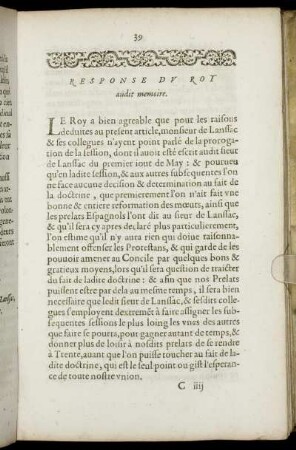 39
RESPONSE DV ROY
audit memoire.
LE Roy a bien agreable que pour les raisons
deduites au present article, monsieur de Lanssac
& ses collegues n'ayent point parlé de la prorogation
de la session, dont il auoit esté escrit audit sieur
de Lansac du premier iour de May : & pourueu
qu'en ladite session, & aux autres subsequentes l'on
ne face aucune decision & determination au fait de
la doctrine, que premierement l'on n'ait fait vne
bonne & entiere reformation des mœurs, ainsi que
les prelats Espagnols l'ont dit au sieur de Lansac,
& qu'il sera cy apres declaré plus particulierement,
l'on estime qu'il n'y aura rien qui doiue raisonnablement
offenser les Protestans, & qui garde de les
pouuoir amener au Concile par quelques bons &
gratieux moyens, lors qu'il sera question de traicter
du fait de ladite doctrine : & afin que nos Prelats
puissent estre par delà au mesme temps, il sera bien
necessaire que ledit sieur de Lansac, & sesdits collegues
s'employent dextremēt à faire assigner les subsequentes
sessions le plus loing les vnes des autres
que faire se pourra, pour gagner autant de temps, &
donner plus de loisir à nosdits prelats de se rendre
à Trente, auant que l'on puisse toucher au fait de ladite
doctrine, qui est le seul point ou gist l'esperance
de toute nostre vnion.
C iiij